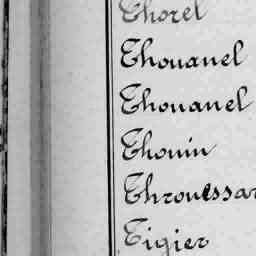 Thorel
Thouanel
Thouanel
Thouin
Throuessar
Tigier